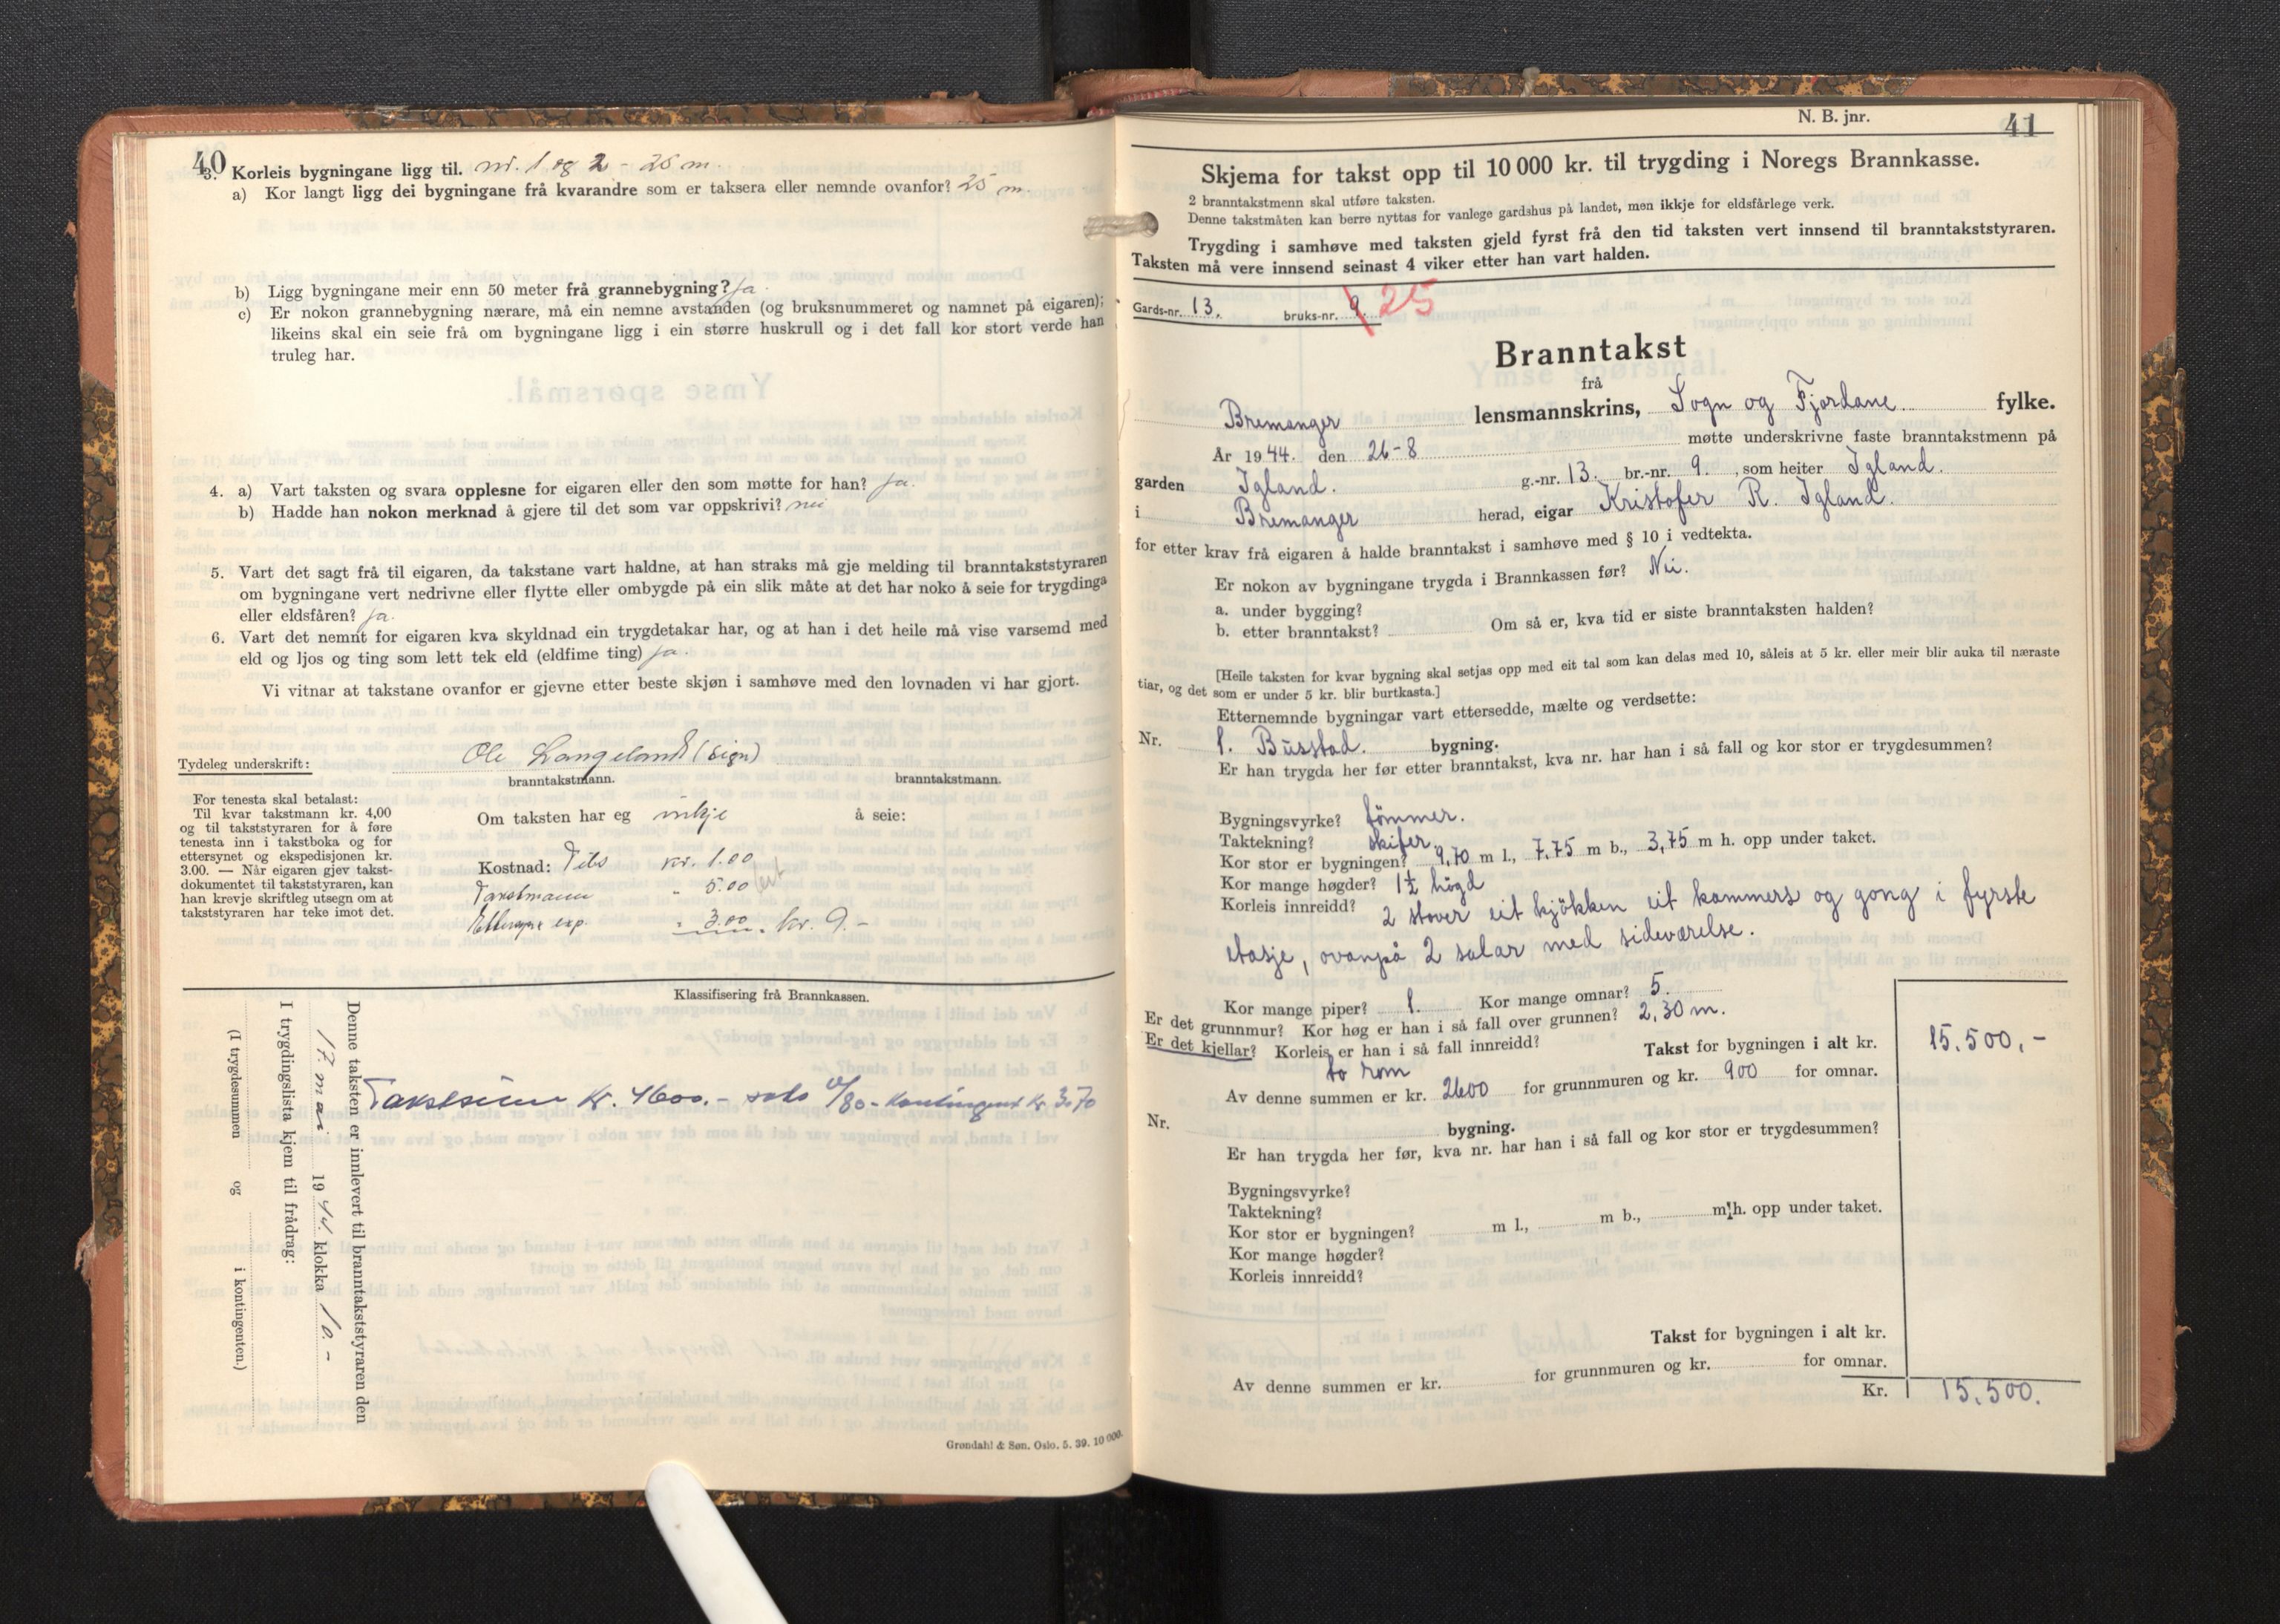 40
3. Korleis bygningane ligg til. nr. 1 og 2 - 25 m.
a) Kor langt ligg dei bygningane frå kvarandre som er taksera eller nemnde ovanfor? 25 m.
b) Ligg bygningane meir enn 50 meter frå grannebygning? ja.
c) Er nokon grannebygning nærare, må ein nemne avstanden (og bruksnummeret og namnet på eigaren);
likeins skal ein seie frå om bygningane ligg i ein større huskrull og i det fall kor stort verde han
truleg har.
4. a) Vart taksten og svara opplesne for eigaren eller den som møtte for han? ja.
b) Hadde han nokon merknad å gjere til det som var oppskrivi? nei
5. Vart det sagt frå til eigaren, da takstane vart haldne, at han straks må gje melding til branntakststyraren
om bygningane vert nedrivne eller flytte eller ombygde på ein slik måte at det har noko å seie for trygdinga
eller eldsfåren? ja.
6. Vart det nemnt for eigaren kva skyldnad ein trygdetakar har, og at han i det heile må vise varsemd med
eld og ljos og ting som lett tek eld (eldfime ting) ja.
Vi vitnar at takstane ovanfor er gjevne etter beste skjøn i samhøve med den lovnaden vi har gjort.
Tydeleg underskrift: Ole Langeland (sign)
branntakstmann. branntakstmann.
For tenesta skal betalast:
Til kvar takstmann kr. 4,00
og til takststyraren for å føre
tenesta inn i takstboka og for
ettersynet og ekspedisjonen kr.
3.00. — Når eigaren gjev takst-
dokumentet til takststyraren, kan
han krevje skriftleg utsegn om at
takststyraren har teke imot det.
Om taksten har eg inkje å seie:
Kostnad: kr. 1.00
Takstmann " 5.00
Ettersyn exp. " 3.00. kr. 9.-
Klassifisering frå Brannkassen.
Takstsum kr. 4600.- - Kontingent kr 3.70
Denne taksten er innlevert til branntakststyraren den
17. mai 1944. klokka 10.-
I trygdingslista kjem til frådrag:
(I trygdesummen og i kontingenten.)
Grøndahl & Søn. Oslo. 5. 39. 10 000.
N. B. jnr. 41
Skjema for takst opp til 10 000 kr. til trygding i Noregs Brannkasse.
2 branntakstmenn skal utføre taksten.
Denne takstmåten kan berre nyttas for vanlege gardshus på landet, men ikkje for eldsfårlege verk.
Trygding i samhøve med taksten gjeld fyrst frå den tid taksten vert innsend til branntakststyraren.
Taksten må vere innsend seinast 4 viker etter han vart halden.
Gards-nr. 13. bruks-nr. 9. 25
Branntakst
frå
Bremanger lensmannskrins, Sogn og Fjordane fylke.
År 1944. den 26-8 møtte underskrivne faste branntakstmenn på
garden Igland. g.-nr. 13. br.-nr. 9. , som heiter Igland.
i Bremanger herad, eigar Kristofer R. Igland.
for etter krav frå eigaren å halde branntakst i samhøve med § 10 i vedtekta.
Er nokon av bygningane trygda i Brannkassen før? Nei.
a. under bygging?
b. etter branntakst? Om så er, kva tid er siste branntaksten halden?
[Heile taksten for kvar bygning skal setjas opp med eit tal som kan delas med 10, såleis at 5 kr. eller meir blir auka til næraste
tiar, og det som er under 5 kr. blir burtkasta.]
Etternemnde bygningar vart ettersedde, mælte og verdsette:
Nr. 1. Bustad. bygning.
Er han trygda her før etter branntakst, kva nr. har han i så fall og kor stor er trygdesummen?
Bygningsvyrke? tömmer.
Taktekning? skifer.
Kor stor er bygningen? 9,70 m l., 7,75 m b., 3,75 m h. opp under taket.
Kor mange høgder? 1½ högd
Korleis innreidd? 2 stover eit kjökken eit kammers og gong i fyrste
etasje, ovanpå 2 salar med sideværelse.
Kor mange piper? 1. Kor mange omnar? 5.
Er det grunnmur? Kor høg er han i så fall over grunnen? 2,30 m.
Er det kjellar? Korleis er han i så fall innreidd? Takst for bygningen i alt kr. 15.500,-
to rom
Av denne summen er kr. 2600 for grunnmuren og kr. 900 for omnar.
Nr. bygning.
Er han trygda her før, kva nr. har han i så fall og kor stor er trygdesummen?
Bygningsvyrke?
Taktekning?
Kor stor er bygningen? m l., m b., m h. opp under taket.
Kor mange høgder?
Korleis innreidd?
Takst for bygningen i alt kr.
Av denne summen er kr. for grunnmuren og kr. for omnar.
Kr. 15.500.